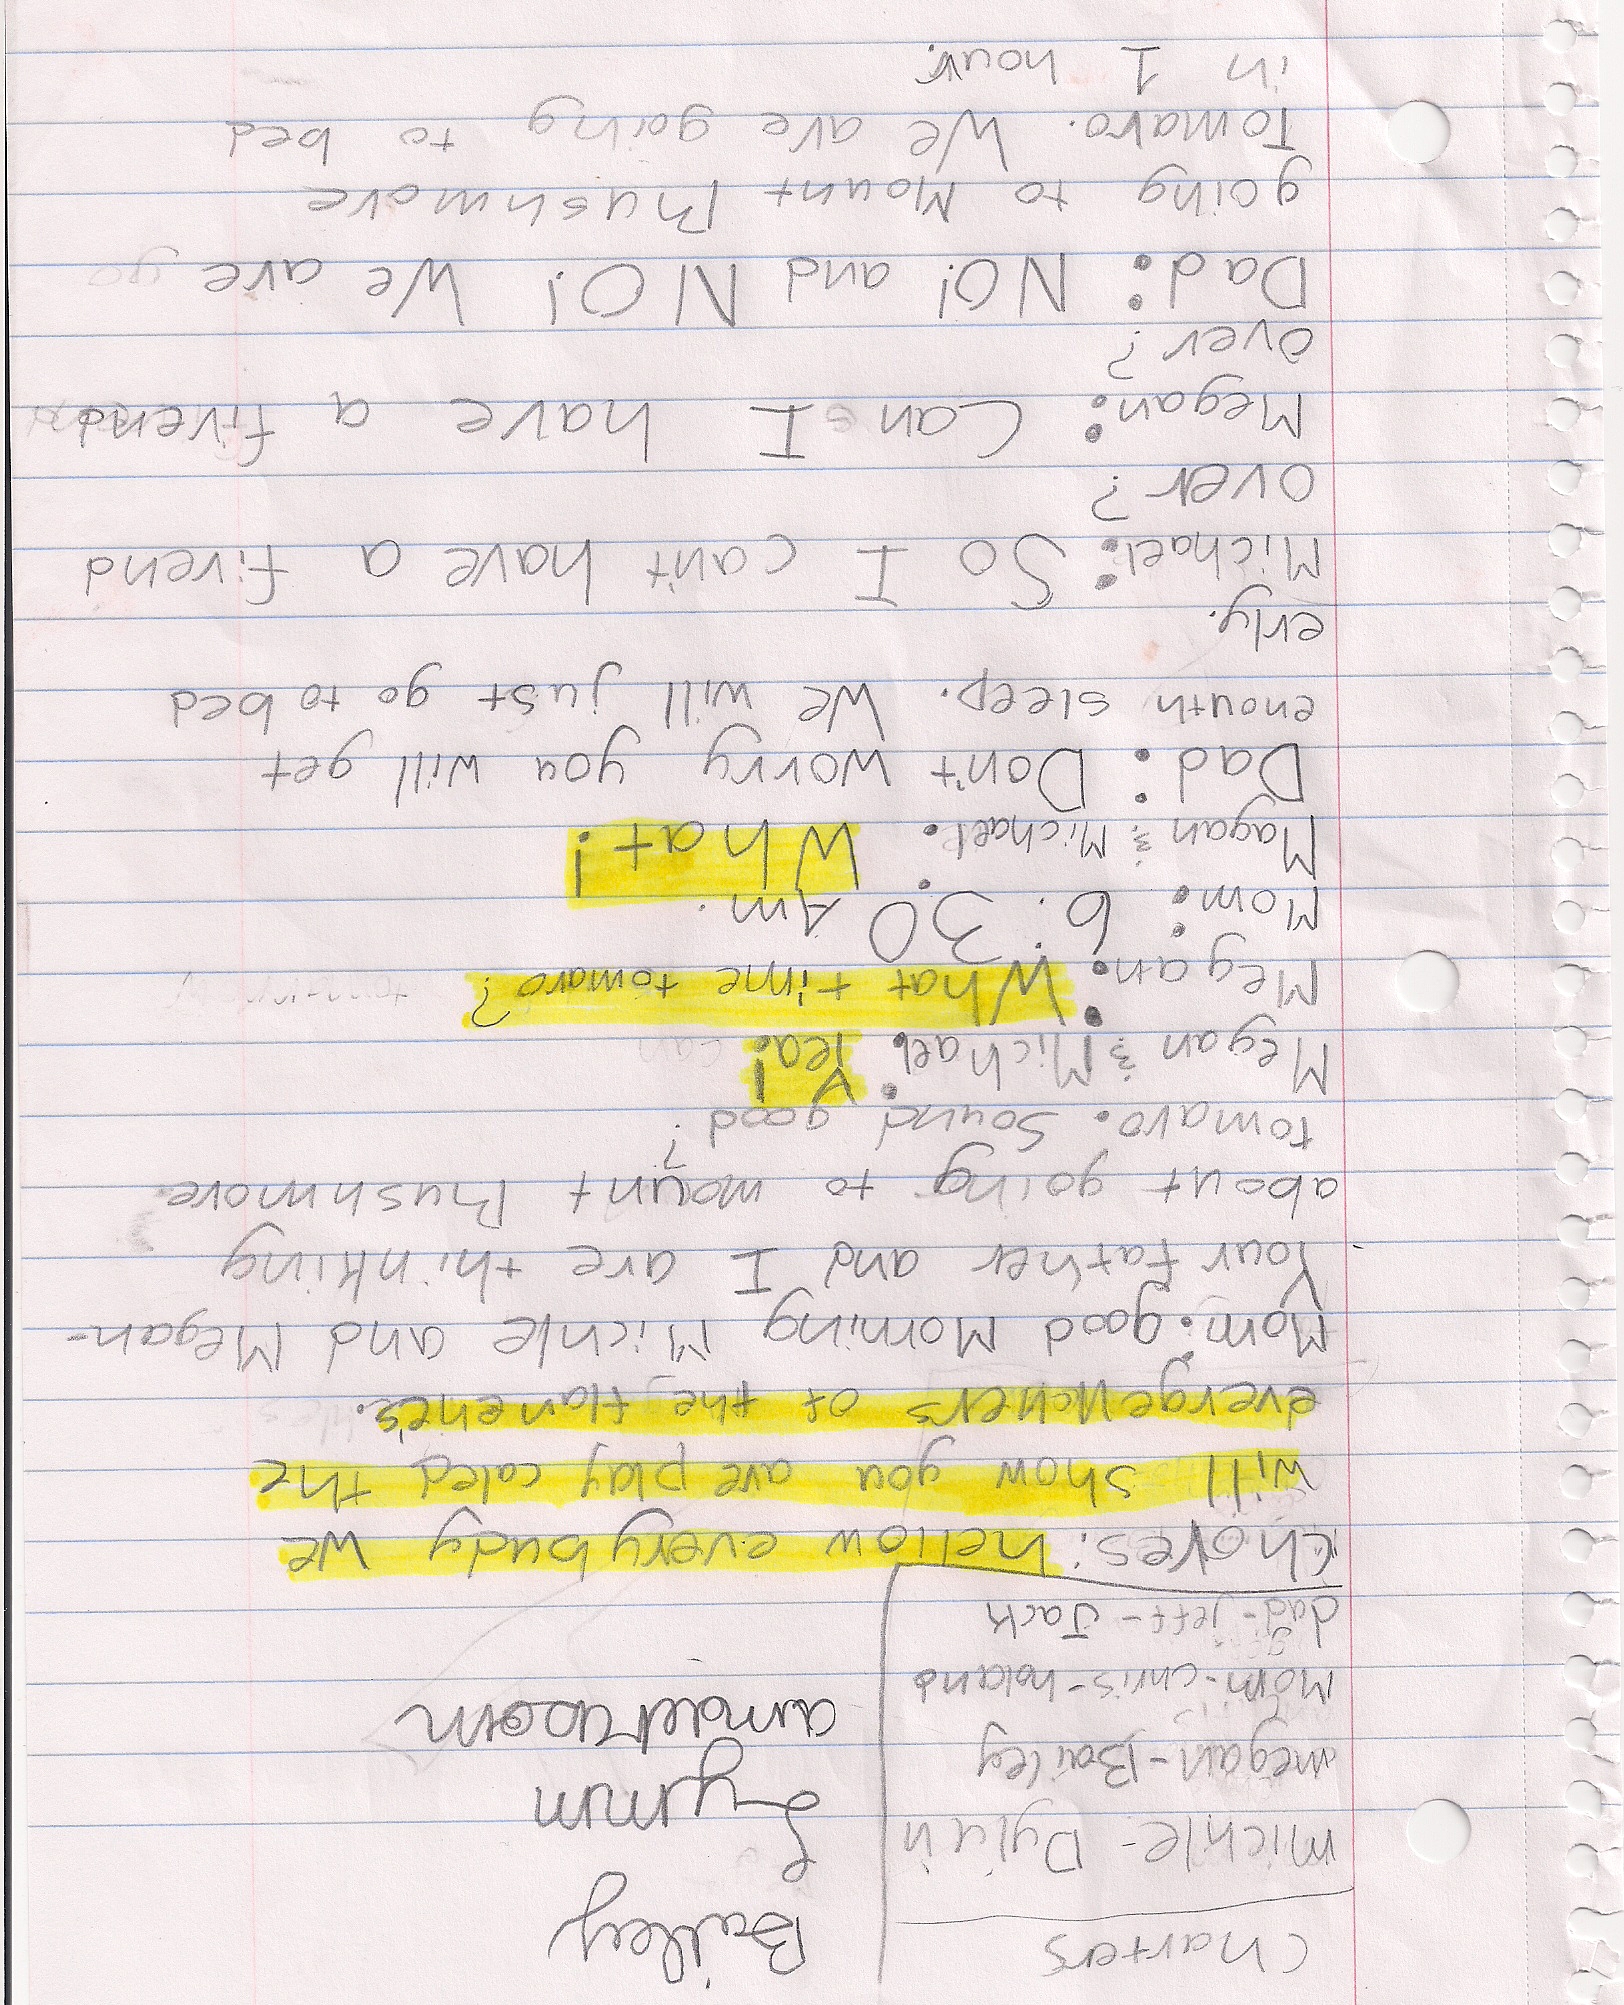 Charters
michle - Dylan
megan - Bailey
Mom - chris - holand
dad - jeff - Jack
Bailey
Lynnn
Chores: hellow everybudy we
will show you are play caled the
evergellcners of the flamenes.
Mom: good Morning Michle and Megan-
Your Father and I are thinking
about going to mount Rushmore
tomaro. Sound good?
Megan & Michael: Yea!
Megan: What time tomaro?
Mom: 6:30 Am.
Magan & Michael: What!
Dad: Don't worry you will get
enouth sleep. We will just go to bed
erly.
Michael: So I can't have a firend
over?
Megan: Can I have a firend
over?
Dad: NO! and NO! We are
going to Mount Rushmore
Tomaro. We are going to bed
in 1 hour.